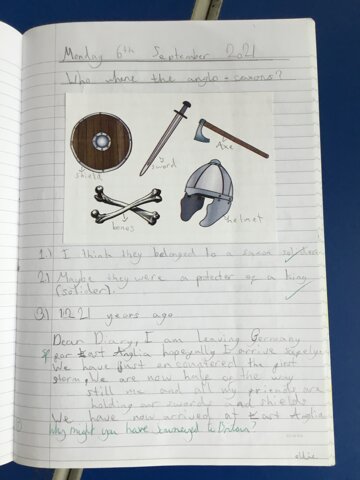 Monday 6th September 2021
Who where the anglo-saxons?
shield
sword
Axe
bones
helmet
1.) I think they belonged to a saxon
2.) Maybe they were a protecter of a king
(solider).
3) 1221 years ago
Dear Diary, I am leaving Germany
for East Anglia hopefully I arrive safelye
We have just encontered the first
storm, We are now half of the way
still me and all my friends are
holding our swords and shields
We have now arrived at East Anglia
Why might you have journeyed to Britain?